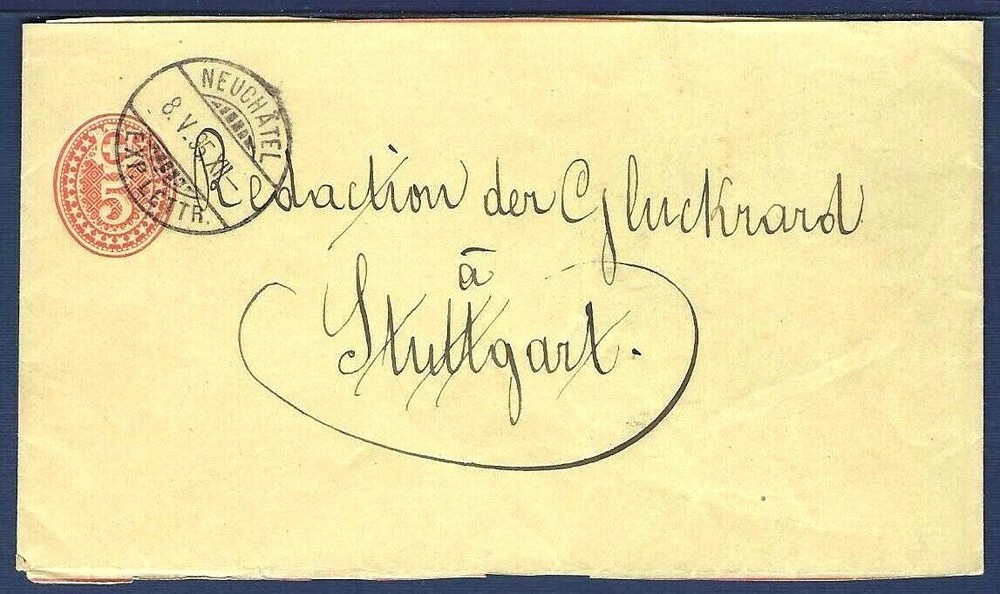 NEUCHÂTEL
8.V.95.XII-
EXP. LETTR.
5
Redaction der Gluckrard
à
Stuttgart.